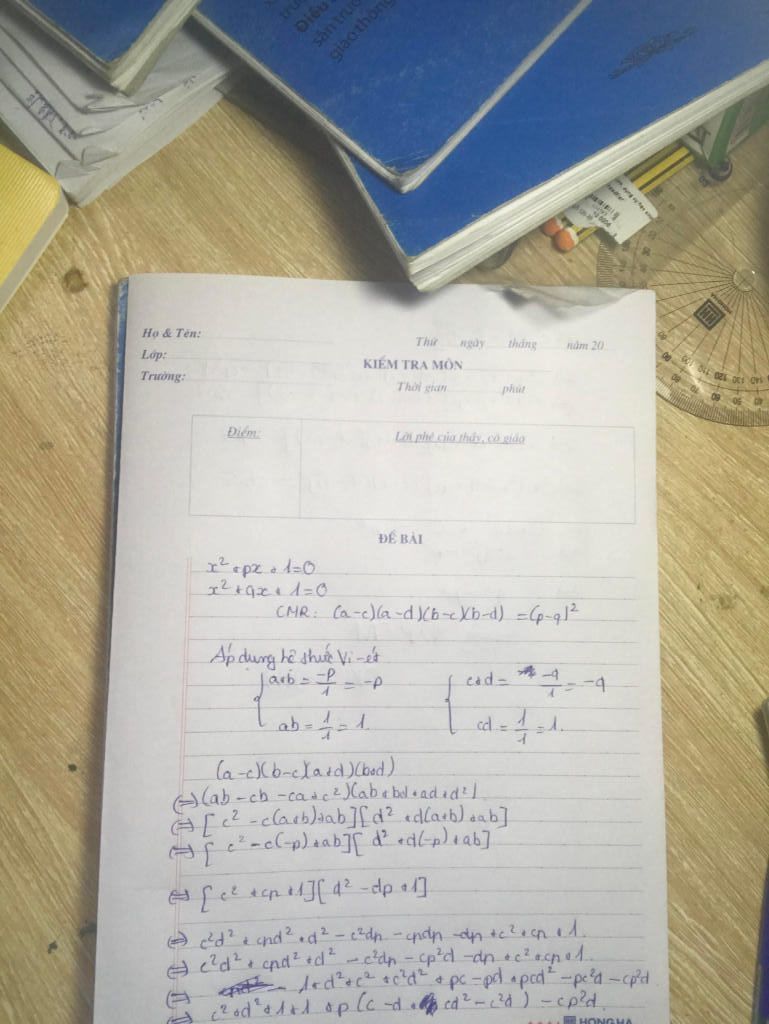 Điều
sân trường
giao thông
Họ & Tên:
Thứ ngày tháng năm 20
Lớp:
KIỂM TRA MÔN
Trường:
Thời gian phút
Điểm:
Lời phê của thầy, cô giáo
ĐỀ BÀI
x² + px + 1 = 0
x² + qx + 1 = 0
CMR: (a-c)(a-d)(b-c)(b-d) = (p-q)²
Áp dụng hệ thức Vi-ét
a+b = -p/1 = -p
c+d = -q/1 = -q
ab = 1/1 = 1.
cd = 1/1 = 1.
(a-c)(b-c)(a+d)(b+d)
⇔ (ab - cb - ca + c²)(ab + bd + ad + d²)
⇔ [c² - c(a+b) + ab][d² + d(a+b) + ab]
⇔ [c² - c(-p) + ab][d² + d(-p) + ab]
⇔ [c² + cp + 1][d² - dp + 1]
⇔ c²d² + cpd² + d² - c²dp - cpdp - dp + c² + cp + 1.
⇔ c²d² + cpd² + d² - c²dp - cp²d - dp + c² + cp + 1.
⇔ 1 + d² + c² + c²d² + pc - pd + pcd² - pc²d - cp²d
⇔ c² + d² + 1 + 1 + p(c - d + cd² - c²d) - cp²d.
HONG HA